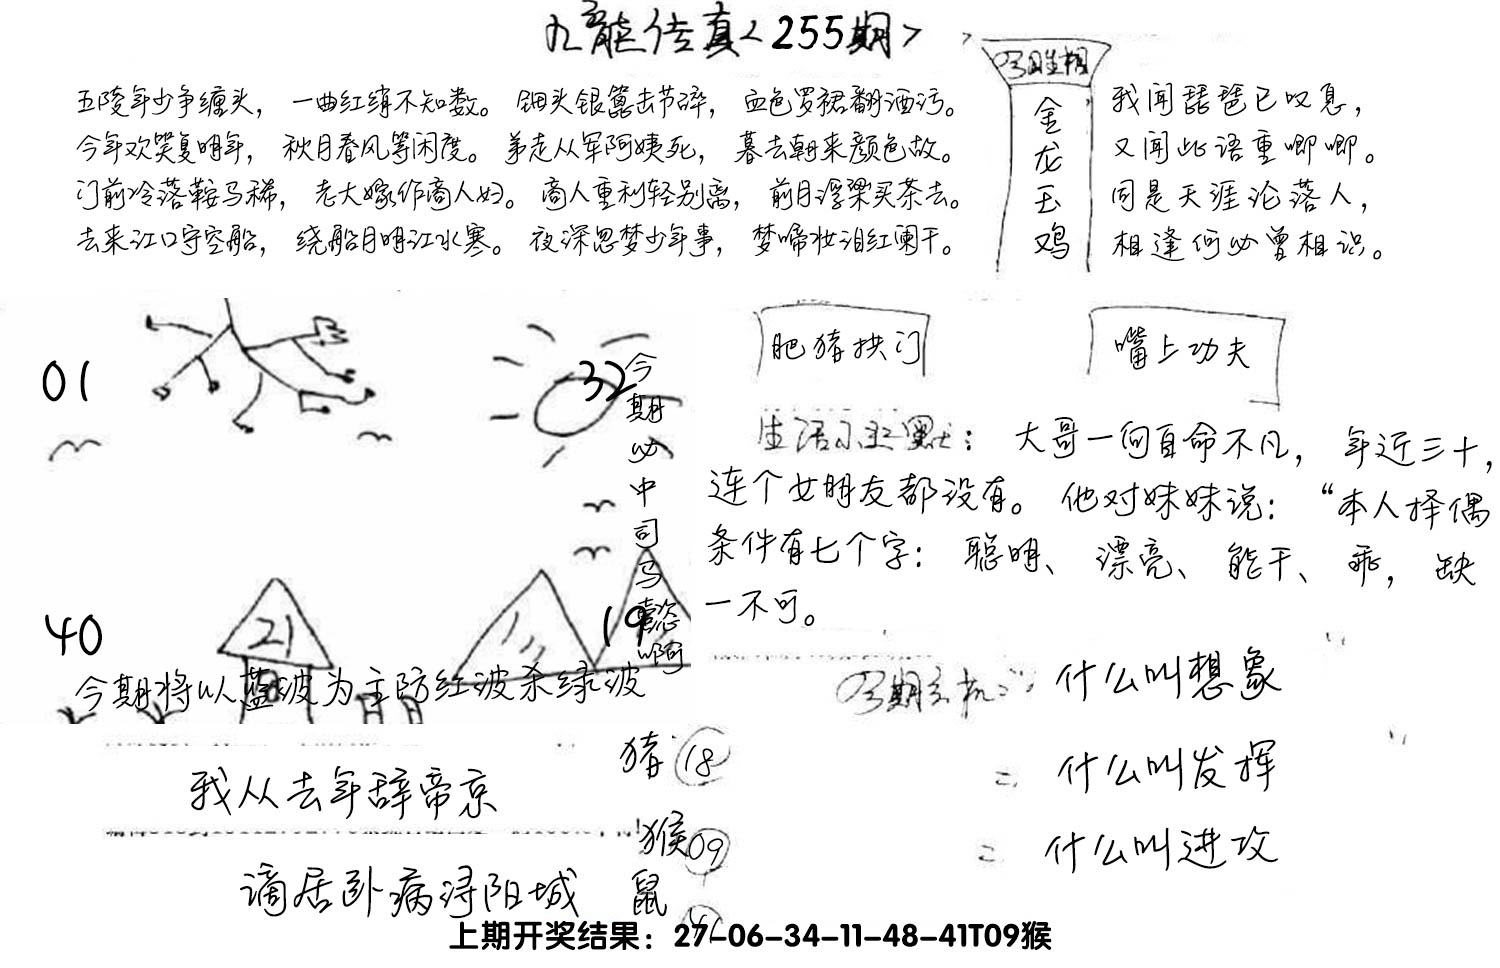 九龙传真<255期>
五陵年少争缠头，一曲红绡不知数。钿头银篦击节碎，血色罗裙翻酒污。
今年欢笑复明年，秋月春风等闲度。弟走从军阿姨死，暮去朝来颜色故。
门前冷落鞍马稀，老大嫁作商人妇。商人重利轻别离，前月浮梁买茶去。
去来江口守空船，绕船月明江水寒。夜深忽梦少年事，梦啼妆泪红阑干。
金龙玉鸡
我闻琵琶已叹息，
又闻此语重唧唧。
同是天涯沦落人，
相逢何必曾相识。
01
32
今期必中司马懿啊
40
21
19
今期将以蓝波为主防红波杀绿波
肥猪拱门
嘴上功夫
生活小幽默：大哥一向自命不凡，年近三十，
连个女朋友都没有。他对妹妹说："本人择偶
条件有七个字：聪明、漂亮、能干、乖，缺
一不可。
什么叫想象
什么叫发挥
什么叫进攻
我从去年辞帝京
谪居卧病浔阳城
猪 18
猴 09
鼠
上期开奖结果：27-06-34-11-48-41T09猴